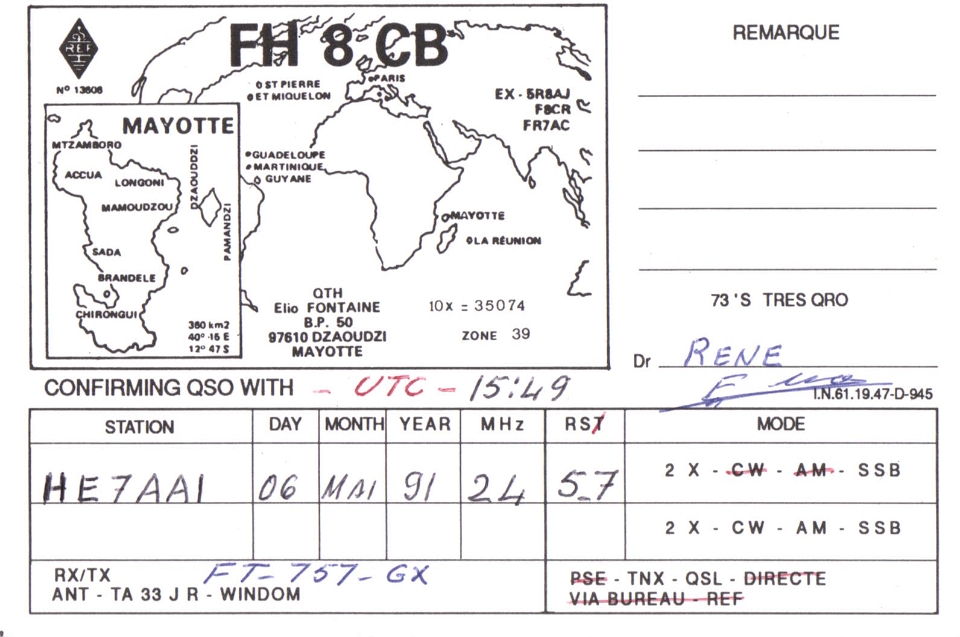 FH 8 CB
REF
Nº 13608
ST PIERRE
ET MIQUELON
PARIS
EX - 5R8AJ
F8CR
FR7AC
MAYOTTE
MTZAMBORO
ACCUA
LONGONI
MAMOUDZOU
DZAOUDDZI
PAMANDZI
SADA
BRANDELE
CHIRONGUI
360 km2
40º 16 E
12º 47 S
GUADELOUPE
MARTINIQUE
GUYANE
MAYOTTE
LA RÉUNION
QTH
Elio FONTAINE
B.P. 50
97610 DZAOUDZI
MAYOTTE
10X = 35074
ZONE 39
REMARQUE
73'S TRES QRO
Dr RENE
I.N.61.19.47-D-945
CONFIRMING QSO WITH - UTC - 15:49
STATION DAY MONTH YEAR MHz RST MODE
HE7AAI 06 MAI 91 24 5_7 2 X - CW - AM - SSB
2 X - CW - AM - SSB
RX/TX FT-757-GX
ANT - TA 33 J R - WINDOM
PSE - TNX - QSL - DIRECTE
VIA BUREAU - REF